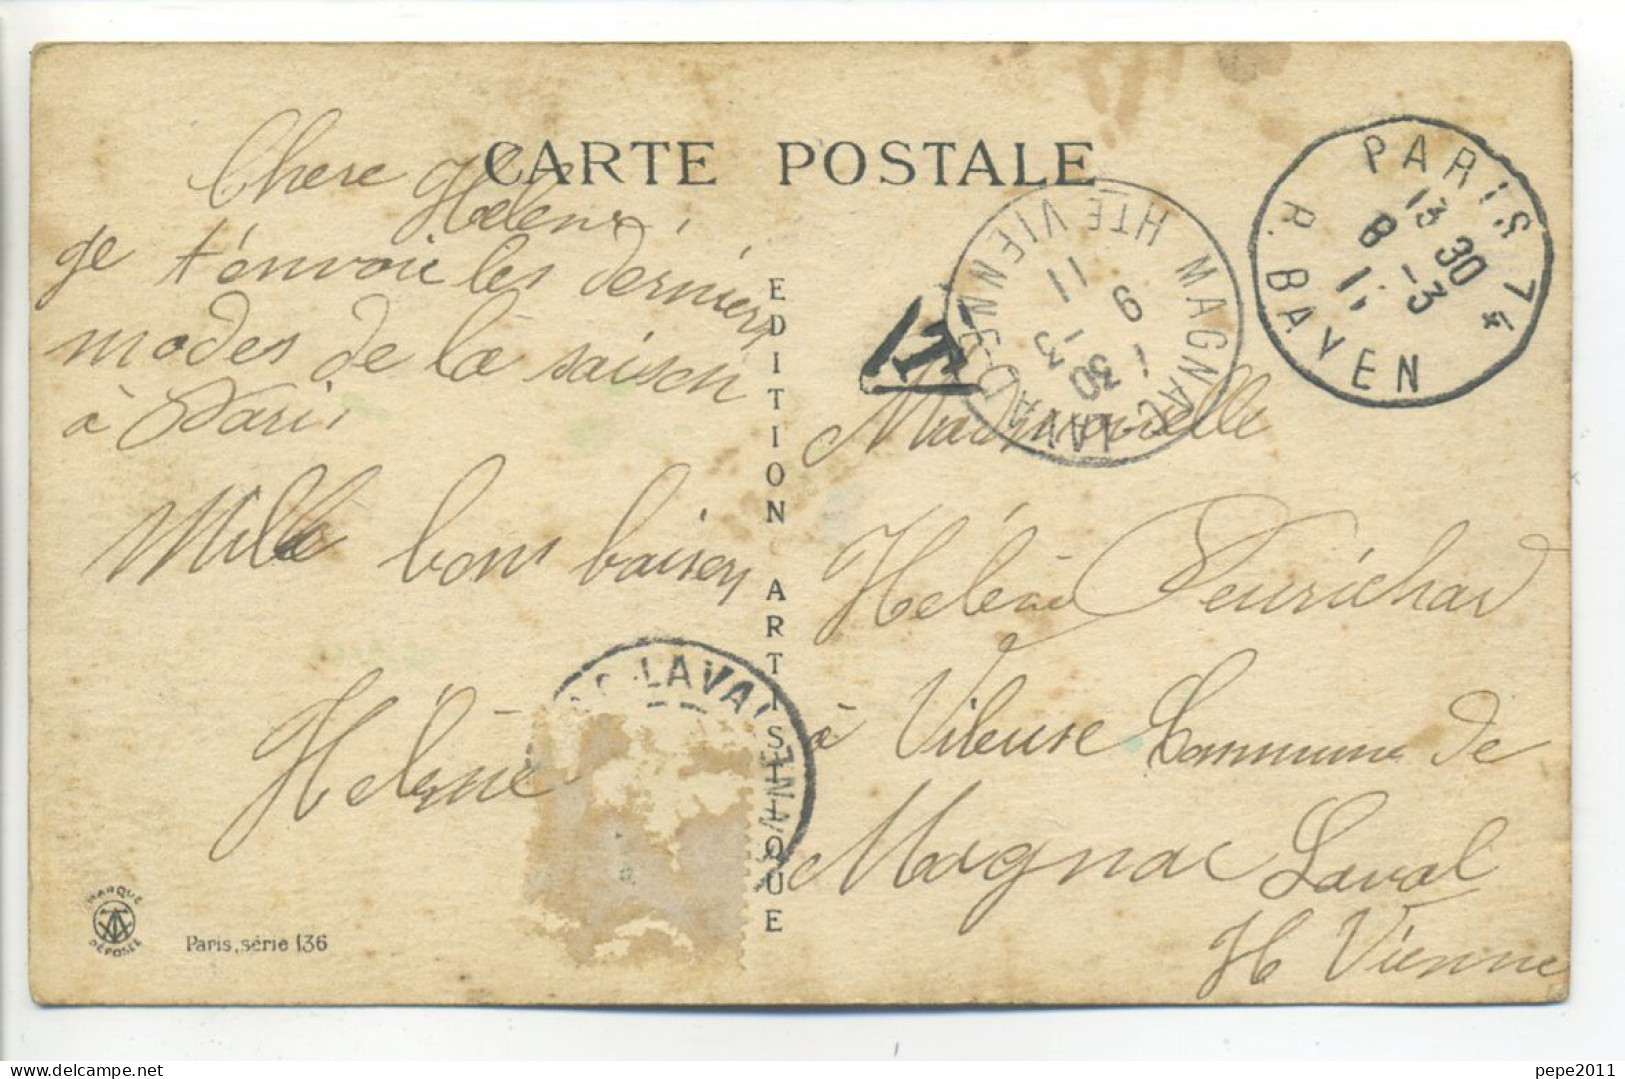 CARTE POSTALE
Chere Hélene,
je t'envoie les derniers
modes de la saison
à Paris
Mille bons baisers
Hélène
EDITION ARTISTIQUE
MARQUE DÉPOSÉE
Paris, série 136
T
MAGNAC-LAVAL HTE VIENNE
9 - 3
11
PARIS 74
13 30
8 - 3
11
R. BAYEN
LAVAL
Mademoiselle
Hélène Peurichard
à Vileuse Commune de
Magnac Laval
H Vienne
pepe2011